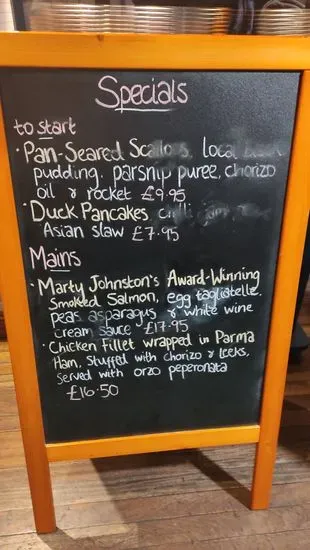 Specials
to start
• Pan-Seared Scallops, local
pudding, parsnip puree, chorizo
oil & rocket £9.95
• Duck Pancakes, chilli jam,
Asian slaw £7.95
Mains
• Marty Johnston's Award-Winning
Smoked Salmon, egg tagliatelle,
peas, asparagus & white wine
cream sauce £17.95
• Chicken Fillet wrapped in Parma
Ham, Stuffed with chorizo & Leeks,
served with orzo peperonata
£16.50